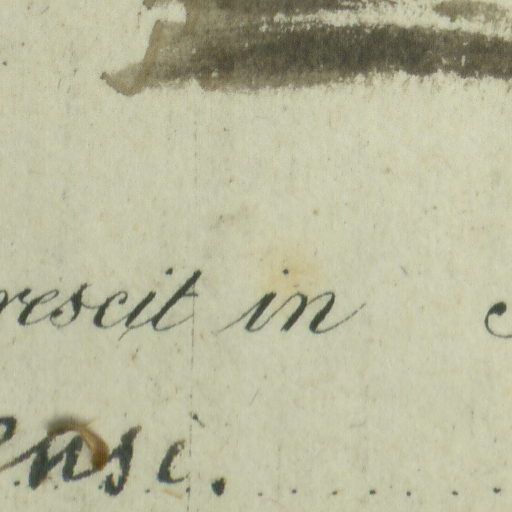 rescit in
ensi.